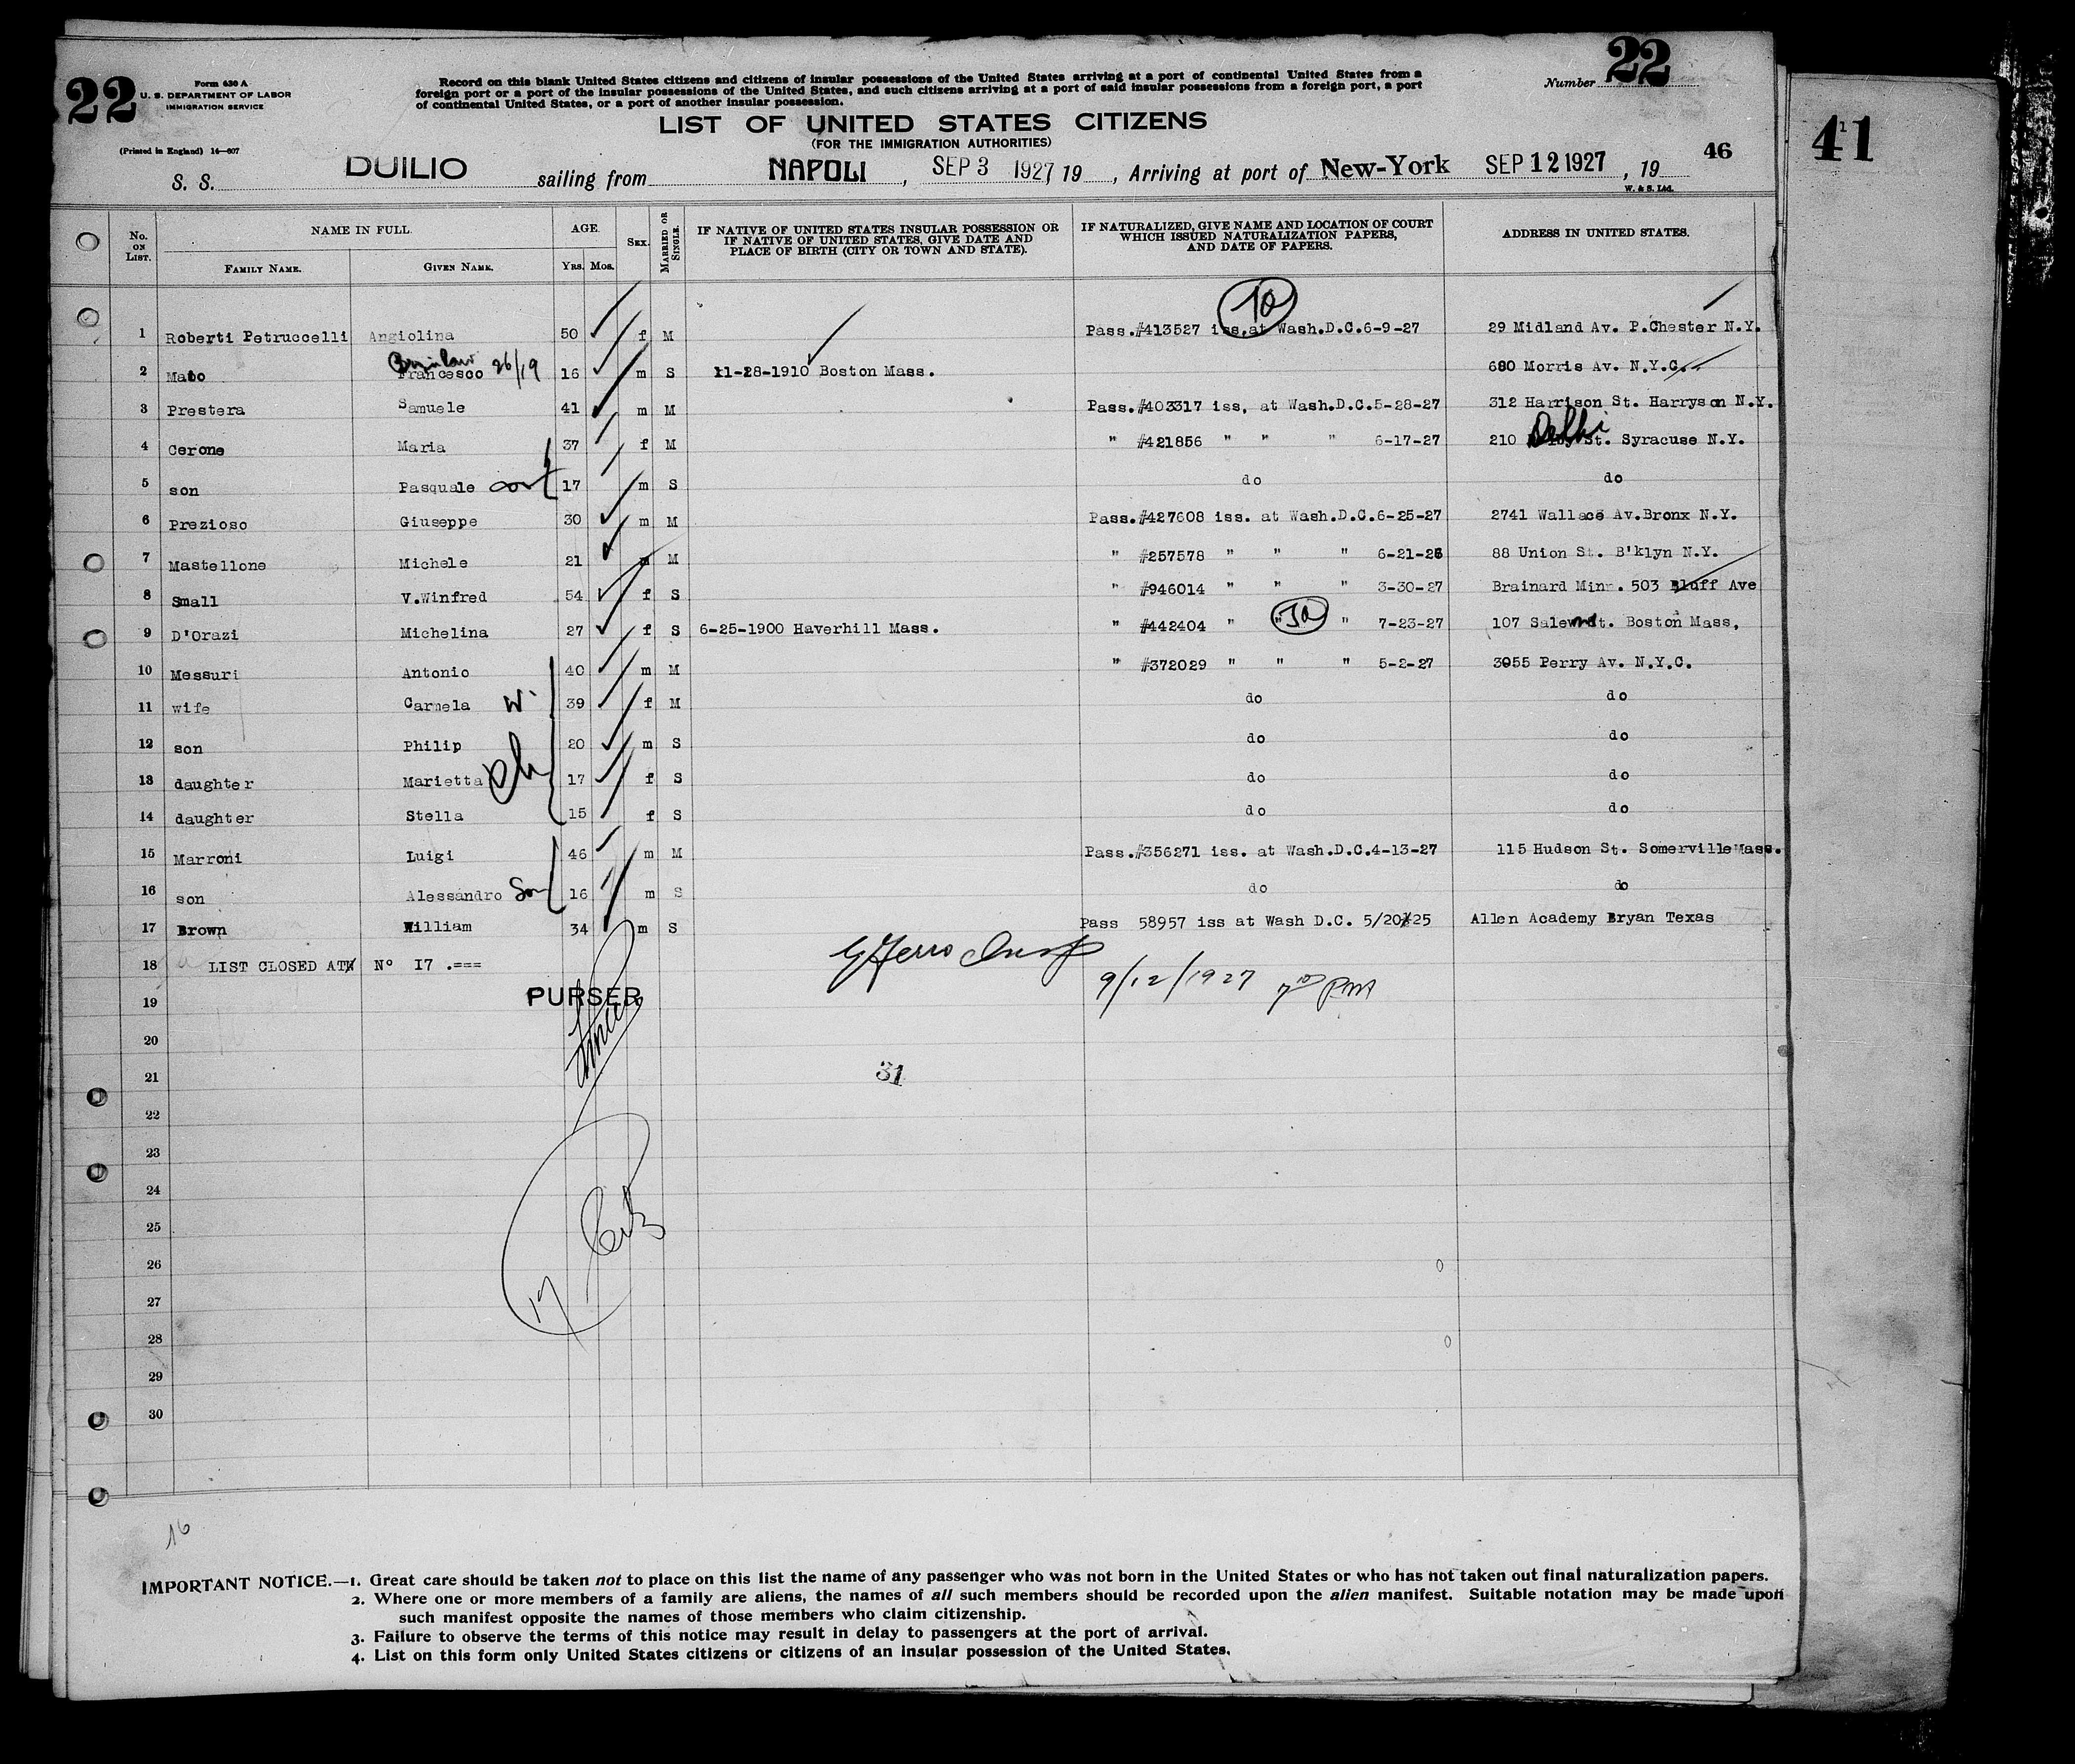 22
Form 630 A
U. S. DEPARTMENT OF LABOR
IMMIGRATION SERVICE
(Printed in England) 14—607
Record on this blank United States citizens and citizens of insular possessions of the United States arriving at a port of continental United States from a
foreign port or a port of the insular possessions of the United States, and such citizens arriving at a port of said insular possessions from a foreign port, a port
of continental United States, or a port of another insular possession.
Number 22
41
LIST OF UNITED STATES CITIZENS
(FOR THE IMMIGRATION AUTHORITIES)
46
S. S. DUILIO sailing from NAPOLI, SEP 3 1927 19, Arriving at port of New-York SEP 12 1927, 19
W. & S. Ltd.
No. ON LIST. NAME IN FULL. FAMILY NAME. GIVEN NAME. AGE. YRS. MOS. SEX. MARRIED OR SINGLE. IF NATIVE OF UNITED STATES INSULAR POSSESSION OR IF NATIVE OF UNITED STATES, GIVE DATE AND PLACE OF BIRTH (CITY OR TOWN AND STATE). IF NATURALIZED, GIVE NAME AND LOCATION OF COURT WHICH ISSUED NATURALIZATION PAPERS, AND DATE OF PAPERS. ADDRESS IN UNITED STATES.
1 Roberti Petruccelli Angiolina 50 f M Pass.#413527 iss.at Wash.D.C.6-9-27 29 Midland Av. P.Chester N.Y.
26/19
2 Francesco 16 m S 11-28-1910 Boston Mass. 680 Morris Av. N.Y.C.
3 Prestera Samuele 41 m M Pass.#403317 iss, at Wash.D.C.5-28-27 312 Harrison St. Harryson N.Y.
4 Cerone Maria 37 f M " #421856 " " " 6-17-27 210 Delhi St. Syracuse N.Y.
5 son Pasquale 17 m S do do
6 Prezioso Giuseppe 30 m M Pass.#427608 iss. at Wash.D.C.6-25-27 2741 Wallace Av.Bronx N.Y.
7 Mastellone Michele 21 m M " #257578 " " " 6-21-26 88 Union St. B'klyn N.Y.
8 Small V.Winfred 54 f S " #946014 " " " 3-30-27 Brainard Minn. 503 Bluff Ave
9 D'Orazi Michelina 27 f S 6-25-1900 Haverhill Mass. " #442404 " " " 7-23-27 107 Salem St. Boston Mass,
10 Messuri Antonio 40 m M " #372029 " " " 5-2-27 3055 Perry Av. N.Y.C.
11 wife Carmela W. 39 f M do do
12 son Philip 20 m S do do
13 daughter Marietta Ch 17 f S do do
14 daughter Stella 15 f S do do
15 Marroni Luigi 46 m M Pass.#356271 iss. at Wash.D.C.4-13-27 115 Hudson St. Somerville Mass.
16 son Alessandro Son 16 m S do do
17 Brown William 34 m S Pass 58957 iss at Wash D.C. 5/20/25 Allen Academy Bryan Texas
18 LIST CLOSED AT N° 17 .===
9/12/1927 7 PM
19 PURSER
20
21 31
22
23
24
25
26
27 17
28
29
30
16
IMPORTANT NOTICE.—1. Great care should be taken not to place on this list the name of any passenger who was not born in the United States or who has not taken out final naturalization papers.
2. Where one or more members of a family are aliens, the names of all such members should be recorded upon the alien manifest. Suitable notation may be made upon
such manifest opposite the names of those members who claim citizenship.
3. Failure to observe the terms of this notice may result in delay to passengers at the port of arrival.
4. List on this form only United States citizens or citizens of an insular possession of the United States.